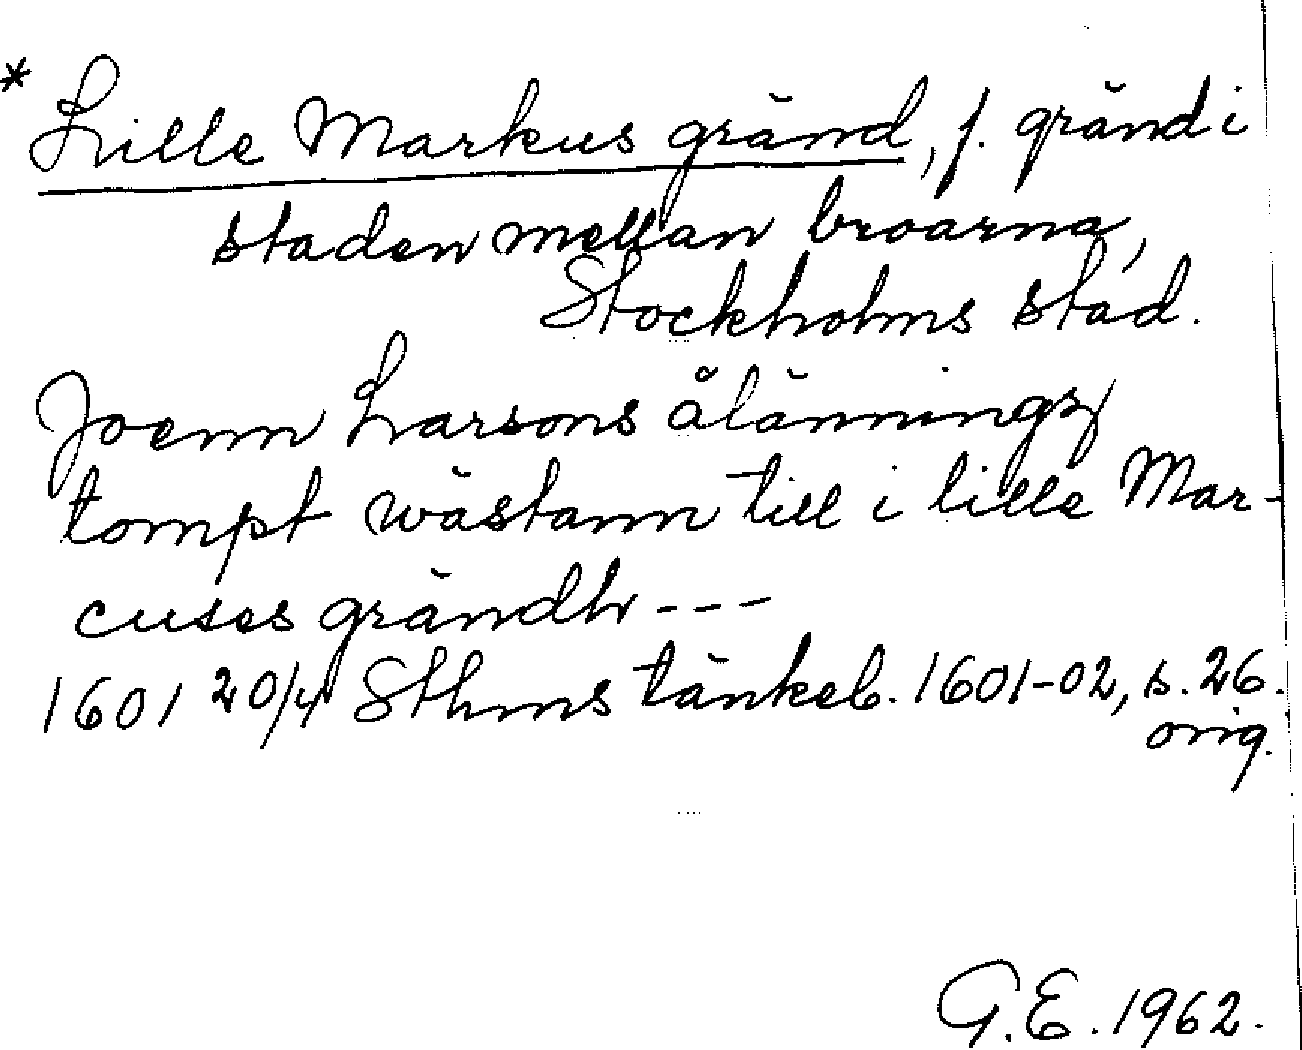 * Lille Markus gränd, f. gränd i
staden mellan broarna,
Stockholms stad.
Joenn Larsons ålänningz
tompt wästann till i lille Mar-
cuses grändh ---
1601 20/4 Sthms tänkeb. 1601-02, s. 26.
orig.
G.E. 1962.